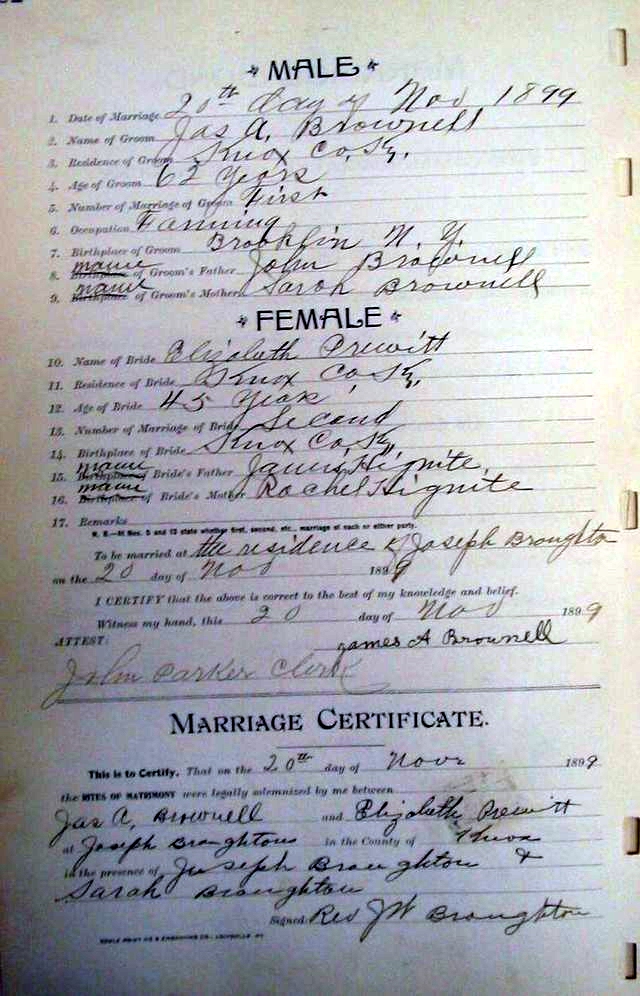 MALE
1. Date of Marriage 20th day of Nov 1899
2. Name of Groom Jas A. Brownell
3. Residence of Groom Knox Co, Ky.
4. Age of Groom 62 Years
5. Number of Marriage of Groom First
6. Occupation Farming
7. Birthplace of Groom Brooklin N. Y.
8. name Birthplace of Groom's Father John Brownell
9. name Birthplace of Groom's Mother Sarah Brownell
FEMALE
10. Name of Bride Elizabeth Prewitt
11. Residence of Bride Knox Co, Ky,
12. Age of Bride 45 Years
13. Number of Marriage of Bride Second
14. Birthplace of Bride Knox Co, Ky,
15. name Birthplace of Bride's Father James Hignite,
16. name Birthplace of Bride's Mother Rachel Hignite
17. Remarks
N. B.—At Nos. 5 and 13 state whether first, second, etc., marriage of each or either party.
To be married at the residence of Joseph Broughton
on the 20 day of Nov 1899
I CERTIFY that the above is correct to the best of my knowledge and belief.
Witness my hand, this 20 day of Nov 1899
ATTEST: James A Brownell
John Parker Clerk
MARRIAGE CERTIFICATE.
This is to Certify, That on the 20th day of Nov 1899
the RITES OF MATRIMONY were legally solemnized by me between
Jas A, Brownell and Elizabeth Prewitt
at Joseph Broughtons in the County of Knox
in the presence of Joseph Broughton &
Sarah Broughton
Signed: Rev JW Broughton